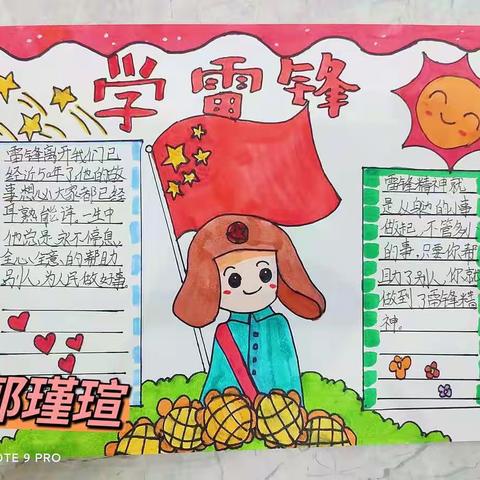 学雷锋
雷锋离开我们已
经近50年了他的故
事想必大家都已经
耳熟能详。一生中
他总是永不停息,
全心全意的帮助
别人,为人民做好事
雷锋精神就
是从身边的小事
做起,不管多小
的事,只要你帮
助了别人,你就
做到了雷锋精
神。
郭瑾瑄
NOTE 9 PRO